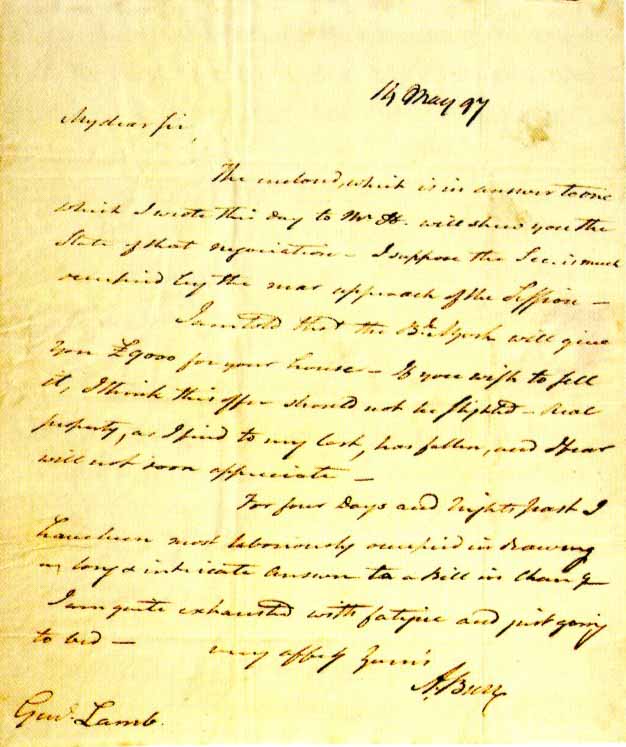 14 May 97
My dear sir,
The enclosed, which is in answer to one
which I wrote this day to Mr H. will shew you the
State of that negociation – I suppose the Sec. is much
occupied by the near approach of the Session –
I am told that the Bk N York will give
you £9000 for your house – If you wish to sell
it, I think this offer should not be slighted – Real
property, as I find to my cost, has fallen, and I fear
will not soon appreciate –
For four Days and Nights past I
have been most laboriously occupied in drawing
a long & intricate Answer to a Bill in Chany
I am quite exhausted with fatigue and just going
to bed –
very affecy Yours
A. Burr
Genl. Lamb.